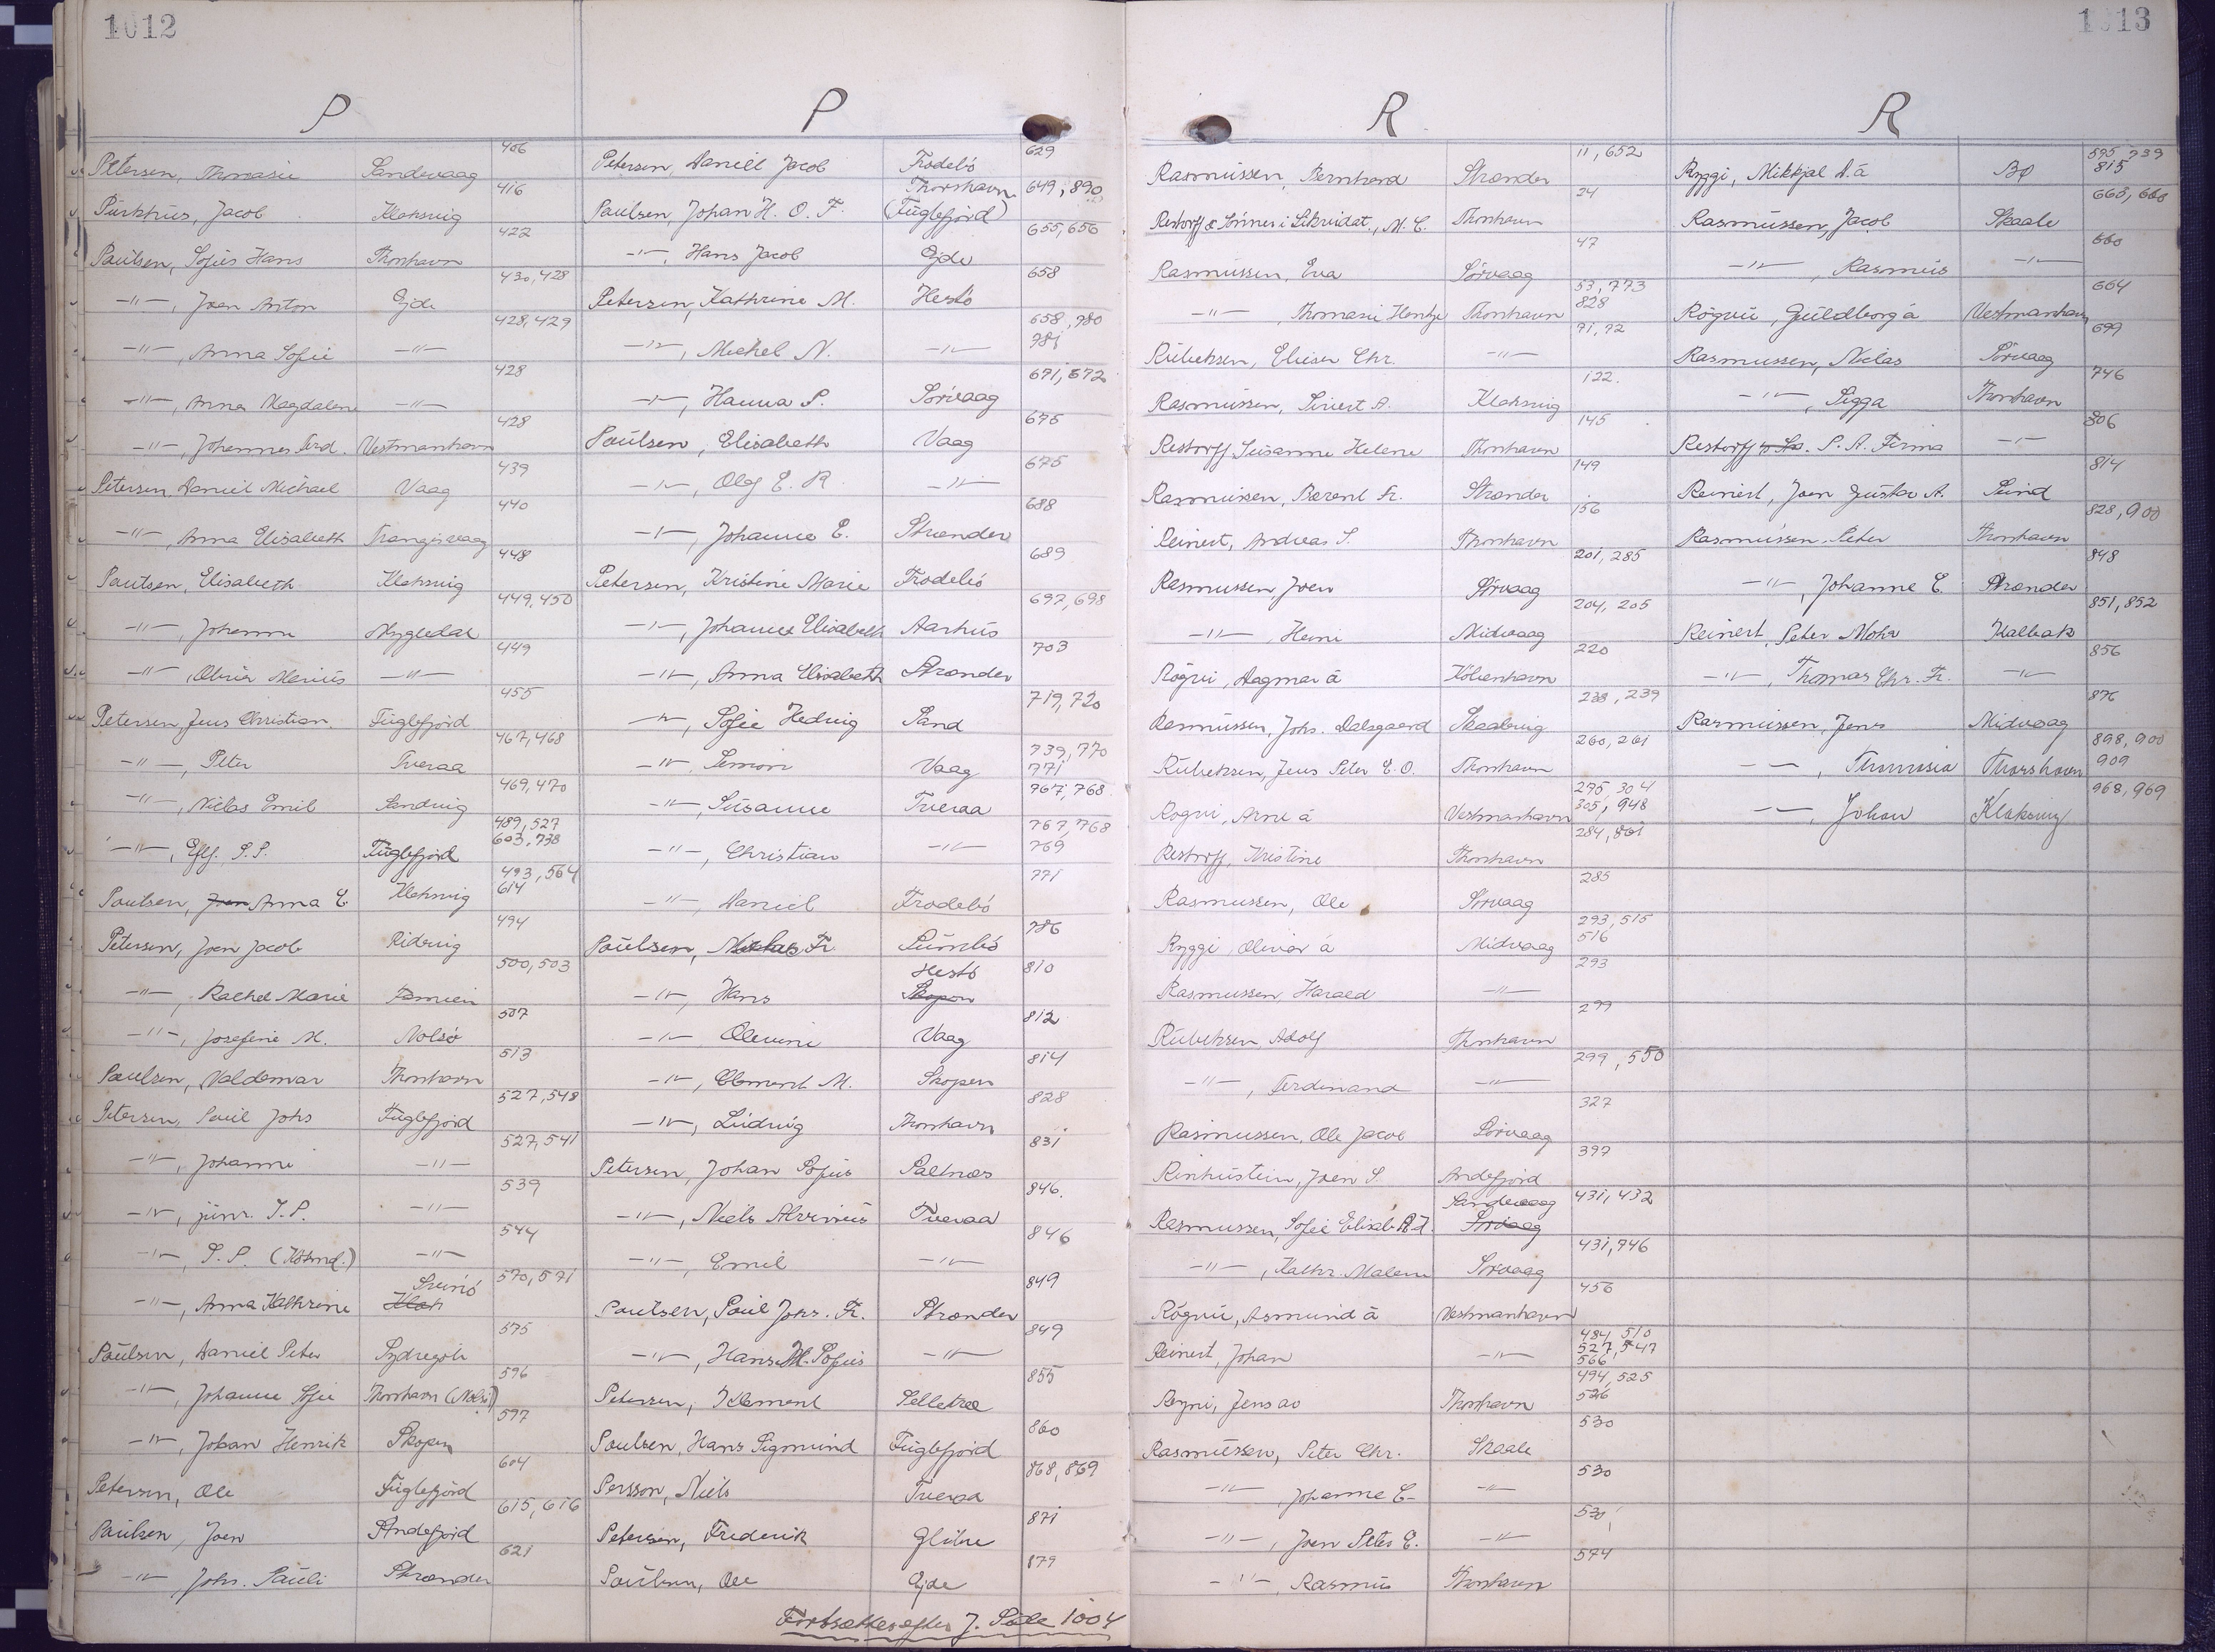 1012
P
P
Petersen, Thomasie Sandevaag 406
Purkhus, Jacob Klaksvig 416
Poulsen, Sofus Hans Thorshavn 422
-"-, Joen Anton Ejde 430, 428
-"-, Anna Sofie -"- 428, 429
-"-, Anna Magdalene -"- 428
-"-, Johannes Ferd. Vestmanhavn 428
Petersen, Daniel Michael Vaag 439
-"-, Anna Elisabeth Trangisvaag 440
Poulsen, Elisabeth Klaksvig 448
-"-, Johanna Mygledal 449, 450
-"-, Olivier Marius -"- 449
Petersen, Jens Christian Fuglefjord 455
-"-, Peter Tveraa 467, 468
-"-, Niclas Emil Sandvig 469, 470
-"-, Eftf. P.P. Fuglefjord 489, 527 603, 738
Poulsen, Joen Anna E. Klaksvig 493, 564 614
Petersen, Joen Jacob Ridevig 494
-"-, Rachel Marie Famien 500, 503
-"-, Josefine M. Nolsö 507
Poulsen, Valdemar Thorshavn 513
Petersen, Poul Johs Fuglefjord 527, 548
-"-, Johanne -"- 527, 541
-"-, junr. J.P. -"- 539
-"-, P.P. (Kbmd.) -"- 544
-"-, Anna Kathrine Klak Svinö 570, 571
Poulsen, Daniel Peter Sydregöte 575
-"-, Johanne Sofie Thorshavn (Nolsö) 596
-"-, Johan Henrik Skopen 597
Petersen, Ole Fuglefjord 604
Poulsen, Joen Andefjord 615, 616
-"-, Johs. Pauli Strander 621
Petersen, Daniel Jacob Frodebö 629
Poulsen, Johan H. O. F. Thorshavn (Fuglefjord) 649, 890
-"-, Hans Jacob Ejde 655, 656
Petersen, Kathrine M. Hestö 658
-"-, Michel N. -"- 658, 980 981
-"-, Hanna S. Sörvaag 671, 672
Poulsen, Elisabeth Vaag 675
-"-, Olof E. R. -"- 675
-"-, Johanne E. Strander 688
Petersen, Kristine Marie Frodebö 689
-"-, Johanne Elisabeth Aarhus 697, 698
-"-, Anna Elisabeth Strander 703
-"-, Sofie Hedvig Sand 719, 720
-"-, Simon Vaag 739, 770 771
-"-, Susanne Tveraa 767, 768
-"-, Christian -"- 767, 768 769
-"-, Daniel Frodebö 771
Poulsen, Niclas Fr. Sumbö 786
-"-, Hans Hestö Skopen 810
-"- Olevine Vaag 812
-"-, Clement M. Skopen 814
-"-, Ludvig Thorshavn 828
Petersen, Johan Sofus Saltnæs 831
-"-, Niels Alvinius Tveraa 846
-"-, Emil -"- 846
Poulsen, Poul Johs. Fr. Strander 849
-"-, Hans M. Sofus -"- 849
Petersen, Klement Selletræ 855
Poulsen, Hans Sigmund Fuglefjord 860
Persson, Niels Tveraa 868, 869
Petersen, Frederik Glibre 871
Poulsen, Ole Ejde 879
Fortsættes efter J. Side 1004
1013
R
R
Rasmussen, Bernhard Strander 11, 652
Restorff & Sönner i Likvidat., M. C. Thorshavn 24
Rasmussen, Eva Sörvaag 47
-"-, Thomasie Hentze Thorshavn 53, 773 828
Rubeksen, Elieser Chr. -"- 71, 72
Rasmussen, Sivert A. Klaksvig 122.
Restorff, Susanne Helene Thorshavn 145
Rasmussen, Berent Fr. Strander 149
Reinert, Andreas S. Thorshavn 156
Rasmussen, Joen Sörvaag 201, 285
-"-, Heini Midvaag 204, 205
Rögvu, Dagmar á Köbenhavn 220
Rasmussen, Johs. Dalsgaard Skaalevig 238, 239
Rubeksen, Jens Peter E. O. Thorshavn 260, 261
Rogvu, Arne á Vestmanhavn 295, 304 305, 948
Restorff, Kristine Thorshavn 284, 801
Rasmussen, Ole Sörvaag 285
Ryggi, Olivar á Midvaag 293, 515 516
Rasmussen Harald -"- 293
Rubeksen, Adolf Thorshavn 299
-"-, Ferdinand -"- 299, 550
Rasmussen, Ole Jacob Sörvaag 327
Reinhustein, Joen S. Andefjord 397
Rasmussen, Sofie Elisab. A.F. Sandevaag Sörvaag 431, 432
-"-, Kathr. Malene Sörvaag 431, 746
Rögvu, Asmund á Vestmanhavn 456
Reinert, Johan -"- 484, 510 527, 547 566
Royni, Jens av Thorshavn 494, 525 526
Rasmussen, Peter Chr. Skaale 530
-"-, Johanne C- -"- 530
-"-, Joen Peter E. -"- 530
-"-, Rasmus Thorshavn 574
Ryggi, Mikkjal D. á Bö 595, 739 815
Rasmussen, Jacob Skaale 663, 660
-"-, Rasmus -"- 660
Rögvu, Guldborg á Vestmanhavn 664
Rasmussen, Niclas Sörvaag 699
-"-, Sigga Thorshavn 746
Restorff S. A. Firma -"- 806
Reinert, Joen Gustav A. Sund 814
Rasmussen, Peter Thorshavn 828, 900
-"-, Johanne E. Strander 848
Reinert, Peter Mohr Kalbak 851, 852
-"-, Thomas Chr. Fr. -"- 856
Rasmussen, Jens Midvaag 876
-"-, Thomasia Thorshavn 898, 900 909
-"-, Johan Klaksvig 968, 969